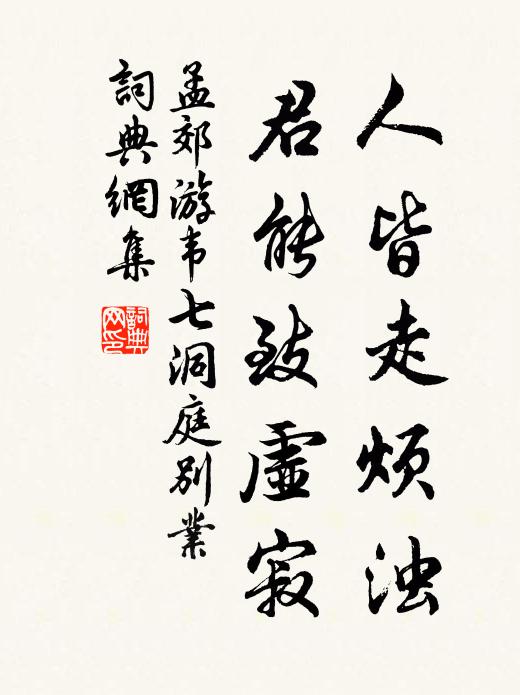 人皆走烦浊
君能致虚寂
孟郊游韦七洞庭别業
詞典網集
詞典网印